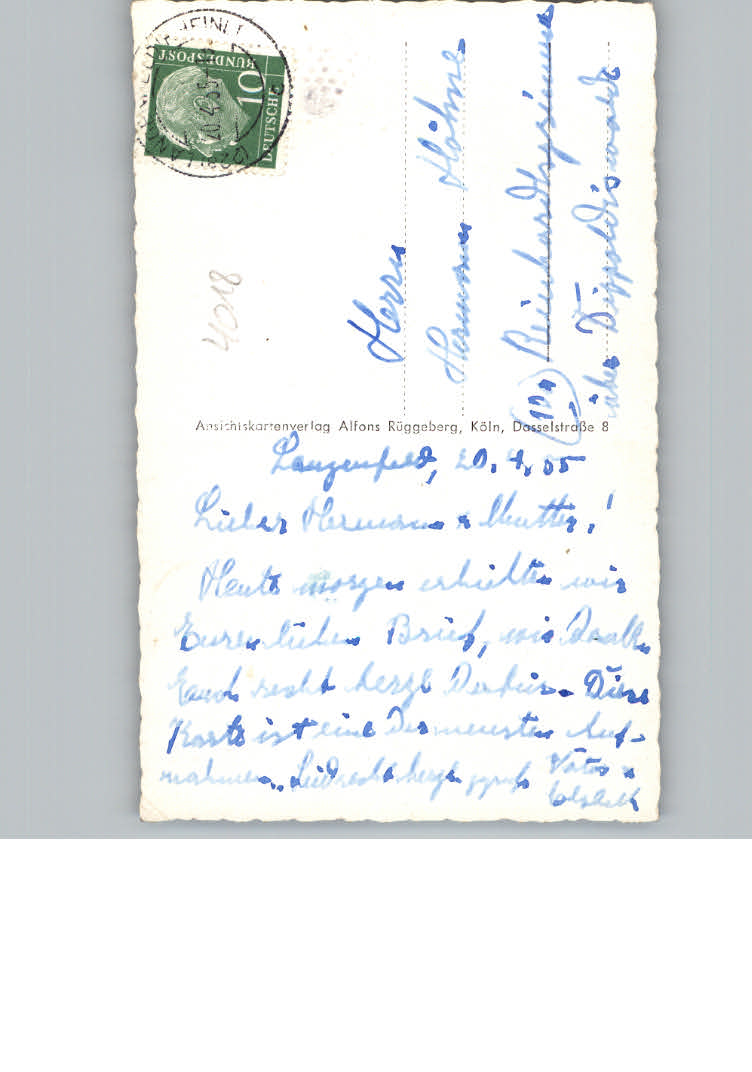 DEUTSCHE
BUNDESPOST
10
4018
Herrn
Hermann Höhne
(10a) Reinhardtsgrimma
über Dippoldiswalde
Ansichtskartenverlag Alfons Rüggeberg, Köln, Dasselstraße 8
Langenfeld, 20. 4. 55
Lieber Hermann u Mutter!
Heute morgen erhielten wir
Euren lieben Brief, wir danken
Euch recht herzl dafür. Diese
Karte ist eine der neuesten Auf-
nahmen. Seid recht herzl gegrüßt Vater u
Elsbeth